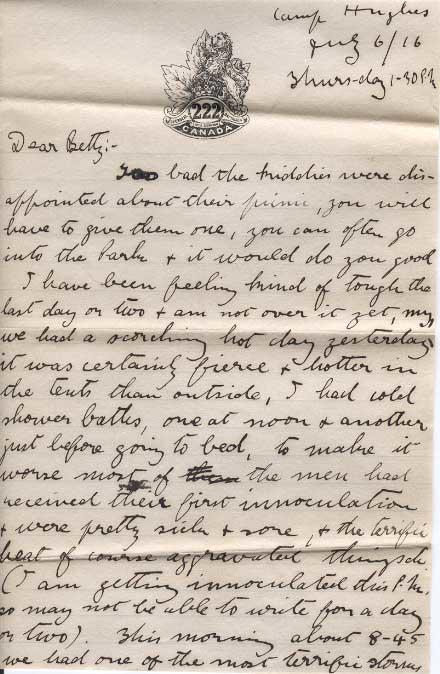 Camp Hughes
July 6/16
Thurs-day 1-30 P.M.
222
CANADA
Dear Betty:-
Too bad the kiddies were dis-
appointed about their picnic, you will
have to give them one, you can often go
into the park & it would do you good
I have been feeling kind of tough the
last day or two & am not over it yet, my
we had a scorching hot day yesterday
it was certainly fierce & hotter in
the tents than outside, I had cold
shower baths, one at noon & another
just before going to bed, to make it
worse most of the men had
received their first innoculation
& were pretty sick & sore, & the terrific
heat of course aggravated things
(I am getting innoculated this P.M.
so may not be able to write for a day
or two). This morning about 8-45
we had one of the most terrific storms